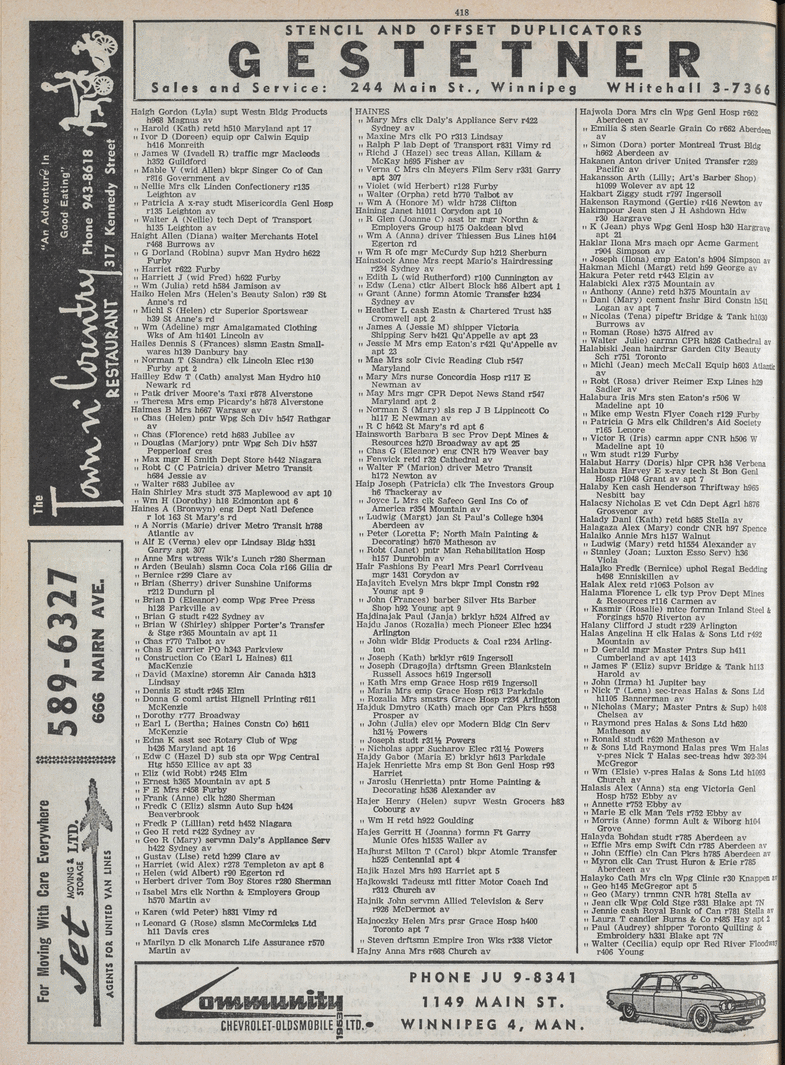 418
STENCIL AND OFFSET DUPLICATORS
GESTETNER
Sales and Service: 244 Main St., Winnipeg WHitehall 3-7366
The
Town n' Country
RESTAURANT
"An Adventure In
Good Eating"
Phone 943-8618
317 Kennedy Street
589-6327
666 NAIRN AVE.
For Moving With Care Everywhere
Jet MOVING & STORAGE LTD.
AGENTS FOR UNITED VAN LINES
Haigh Gordon (Lyla) supt Westn Bldg Products
h968 Magnus av
" Harold (Kath) retd h510 Maryland apt 17
" Ivor D (Doreen) equip opr Calwin Equip
h416 Monreith
" James W (Ivadell R) traffic mgr Macleods
h352 Guildford
" Mable V (wid Allen) bkpr Singer Co of Can
r816 Government av
" Nellie Mrs clk Linden Confectionery r135
Leighton av
" Patricia A x-ray studt Misericordia Genl Hosp
r135 Leighton av
" Walter A (Nellie) tech Dept of Transport
h135 Leighton av
Haight Allen (Diana) walter Merchants Hotel
r468 Burrows av
" G Dorland (Robina) supvr Man Hydro h622
Furby
" Harriet r622 Furby
" Harriett J (wid Fred) h622 Furby
" Wm (Julia) retd h584 Jamison av
Haiko Helen Mrs (Helen's Beauty Salon) r39 St
Anne's rd
" Michl S (Helen) ctr Superior Sportswear
h39 St Anne's rd
" Wm (Adeline) mgr Amalgamated Clothing
Wks of Am h1401 Lincoln av
Hailes Dennis S (Frances) slsmn Eastn Small-
wares h139 Danbury bay
" Norman T (Sandra) clk Lincoln Elec r130
Furby apt 2
Hailey Edw T (Cath) analyst Man Hydro h10
Newark rd
" Patk driver Moore's Taxi r878 Alverstone
" Theresa Mrs emp Picardy's h878 Alverstone
Haimes B Mrs h667 Warsaw av
" Chas (Helen) pntr Wpg Sch Div h547 Rathgar
av
" Chas (Florence) retd h683 Jubilee av
" Douglas (Marjory) pntr Wpg Sch Div h537
Pepperloaf cres
" Max mgr H Smith Dept Store h442 Niagara
" Robt C (C Patricia) driver Metro Transit
h684 Jessie av
" Walter r683 Jubilee av
Hain Shirley Mrs studt 375 Maplewood av apt 10
" Wm H (Dorothy) h18 Edmonton apt 6
Haines A (Bronwyn) eng Dept Natl Defence
r lot 163 St Mary's rd
" A Norris (Marie) driver Metro Transit h788
Atlantic av
" Alf E (Verna) elev opr Lindsay Bldg h331
Garry apt 307
" Anne Mrs wtress Wik's Lunch r280 Sherman
" Arden (Beulah) slsmn Coca Cola r166 Gilia dr
" Bernice r299 Clare av
" Brian (Sherry) driver Sunshine Uniforms
r212 Dundurn pl
" Brian D (Eleanor) comp Wpg Free Press
h128 Parkville av
" Brian G studt r422 Sydney av
" Brian W (Shirley) shipper Porter's Transfer
& Stge r365 Mountain av apt 11
" Chas r770 Talbot av
" Chas E carrier PO h343 Parkview
" Construction Co (Earl L Haines) 611
MacKenzie
" David (Maxine) storemn Air Canada h313
Lindsay
" Dennis E studt r245 Elm
" Donna G coml artist Hignell Printing r611
McKenzie
" Dorothy r777 Broadway
" Earl L (Bertha; Haines Constn Co) h611
McKenzie
" Edna K asst sec Rotary Club of Wpg
h426 Maryland apt 16
" Edw C (Hazel D) sub sta opr Wpg Central
Htg h550 Ellice av apt 33
" Eliz (wid Robt) r245 Elm
" Ernest h365 Mountain av apt 5
" F E Mrs r458 Furby
" Frank (Anne) clk h280 Sherman
" Fredk C (Eliz) slsmn Auto Sup h424
Beaverbrook
" Fredk P (Lillian) retd h452 Niagara
" Geo H retd r422 Sydney av
" Geo R (Mary) servmn Daly's Appliance Serv
h422 Sydney av
" Gustav (Lise) retd h299 Clare av
" Harriet (wid Alex) r278 Templeton av apt 8
" Helen (wid Albert) r90 Egerton rd
" Herbert driver Tom Boy Stores r280 Sherman
" Isabel Mrs clk Northn & Employers Group
h570 Martin av
" Karen (wid Peter) h831 Vimy rd
" Leonard G (Rose) slsmn McCormicks Ltd
h11 Davis cres
" Marilyn D clk Monarch Life Assurance r570
Martin av
HAINES
" Mary Mrs clk Daly's Appliance Serv r422
Sydney av
" Maxine Mrs clk PO r313 Lindsay
" Ralph P lab Dept of Transport r831 Vimy rd
" Richd J (Hazel) sec treas Allan, Killam &
McKay h695 Fisher av
" Verna C Mrs cln Meyers Film Serv r331 Garry
apt 307
" Violet (wid Herbert) r128 Furby
" Walter (Orpha) retd h770 Talbot av
" Wm A (Honore M) wldr h728 Clifton
Haining Janet h1011 Corydon apt 10
" R Glen (Joanne C) asst br mgr Northn &
Employers Group h175 Oakdean blvd
" Wm A (Anna) driver Thiessen Bus Lines h164
Egerton rd
" Wm R ofc mgr McCurdy Sup h212 Sherburn
Hainstock Anne Mrs recpt Mario's Hairdressing
r234 Sydney av
" Edith L (wid Rutherford) r100 Cunnington av
" Edw (Lena) ctklr Albert Block h86 Albert apt 1
" Grant (Anne) formn Atomic Transfer h234
Sydney av
" Heather L cash Eastn & Chartered Trust h35
Cromwell apt 2
" James A (Jessie M) shipper Victoria
Shipping Serv h421 Qu'Appelle av apt 23
" Jessie M Mrs emp Eaton's r421 Qu'Appelle av
apt 23
" Mae Mrs solr Civic Reading Club r547
Maryland
" Mary Mrs nurse Concordia Hosp r117 E
Newman av
" May Mrs mgr CPR Depot News Stand r547
Maryland apt 2
" Norman S (Mary) sls rep J B Lippincott Co
h117 E Newman av
" R C h642 St Mary's rd apt 6
Hainsworth Barbara B sec Prov Dept Mines &
Resources h270 Broadway av apt 25
" Chas G (Eleanor) eng CNR h79 Weaver bay
" Fenwick retd r32 Cathedral av
" Walter F (Marion) driver Metro Transit
h172 Newton av
Haip Joseph (Patricia) clk The Investors Group
h6 Thackeray av
" Joyce L Mrs clk Safeco Genl Ins Co of
America r354 Mountain av
" Ludwig (Margt) jan St Paul's College h304
Aberdeen av
" Peter (Loretta F; North Main Painting &
Decorating) h670 Matheson av
" Robt (Janet) pntr Man Rehabilitation Hosp
h157 Dunrobin av
Hair Fashions By Pearl Mrs Pearl Corriveau
mgr 1431 Corydon av
Hajavitch Evelyn Mrs bkpr Impl Constn r92
Young apt 9
" John (Frances) barber Silver Hts Barber
Shop h92 Young apt 9
Hajdinajak Paul (Janja) brklyr h524 Alfred av
Hajdu Janos (Rozalia) mech Pioneer Elec h234
Arlington
" John wldr Bldg Products & Coal r234 Arling-
ton
" Joseph (Kath) brklyr r619 Ingersoll
" Joseph (Dragojla) drftsmn Green Blankstein
Russell Assocs h619 Ingersoll
" Kath Mrs emp Grace Hosp r619 Ingersoll
" Maria Mrs emp Grace Hosp r613 Parkdale
" Rozalia Mrs smstrs Grace Hosp r234 Arlington
Hajduk Dmytro (Kath) mach opr Can Pkrs h558
Prosper av
" John (Julia) elev opr Modern Bldg Cln Serv
h31½ Powers
" Joseph studt r31½ Powers
" Nicholas appr Sucharov Elec r31½ Powers
Hajdy Gabor (Maria E) brklyr h613 Parkdale
Hajek Henriette Mrs emp St Bon Genl Hosp r93
Harriet
" Jaroslu (Henrietta) pntr Home Painting &
Decorating h536 Alexander av
Hajer Henry (Helen) supvr Westn Grocers h83
Cobourg av
" Wm H retd h922 Goulding
Hajes Gerritt H (Joanna) formn Ft Garry
Munic Ofcs h1535 Waller av
Hajhurst Milton T (Carol) bkpr Atomic Transfer
h525 Centennial apt 4
Hajik Hazel Mrs h93 Harriet apt 5
Hajkowski Tadeusz mtl fitter Motor Coach Ind
r912 Church av
Hajnik John servmn Allied Television & Serv
r926 McDermot av
Hajnoczky Helen Mrs prsr Grace Hosp h400
Toronto apt 7
" Steven drftsmn Empire Iron Wks r338 Victor
Hajny Anna Mrs r668 Church av
Hajwola Dora Mrs cln Wpg Genl Hosp r662
Aberdeen av
" Emilia S sten Searle Grain Co r662 Aberdeen
av
" Simon (Dora) porter Montreal Trust Bldg
h662 Aberdeen av
Hakanen Anton driver United Transfer r289
Pacific av
Hakansson Arth (Lilly; Art's Barber Shop)
h1099 Wolever av apt 12
Hakbart Ziggy studt r797 Ingersoll
Hakenson Raymond (Gertie) r416 Newton av
Hakimpour Jean sten J H Ashdown Hdw
r30 Hargrave
" K (Jean) phys Wpg Genl Hosp h30 Hargrave
apt 21
Haklar Ilona Mrs mach opr Acme Garment
r904 Simpson
" Joseph (Ilona) emp Eaton's h904 Simpson av
Hakman Michl (Margt) retd h99 George av
Hakura Peter retd r443 Elgin av
Halabicki Alex r375 Mountain av
" Anthony (Anne) retd h375 Mountain av
" Danl (Mary) cement fnshr Bird Constn h541
Logan av apt 7
" Nicolas (Tena) pipeftr Bridge & Tank h1030
Burrows av
" Roman (Rose) h375 Alfred av
" Walter (Julie) carmn CPR h826 Cathedral av
Halabiski Jean hairdrsr Garden City Beauty
Sch r751 Toronto
" Michl (Jean) mech McCall Equip h603 Atlantic
av
" Robt (Rosa) driver Reimer Exp Lines h29
Sadler av
Halabura Iris Mrs sten Eaton's r506 W
Madeline apt 10
" Mike emp Westn Flyer Coach r129 Furby
" Patricia G Mrs clk Children's Aid Society
r165 Lenore
" Victor R (Iris) carmn appr CNR h506 W
Madeline apt 10
" Wm studt r129 Furby
Halabut Harry (Doris) hlpr CPR h36 Verbena
Halabuza Harvey E x-ray tech St Bon Genl
Hosp r1048 Grant av apt 7
Halaby Ken cash Henderson Thriftway h965
Nesbitt bay
Halacsy Nicholas E vet Cdn Dept Agrl h876
Grosvenor av
Halady Danl (Kath) retd h685 Stella av
Halagaza Alex (Mary) condr CNR h97 Spence
Halaiko Annie Mrs h157 Walnut
" Ludwig (Mary) retd h1534 Alexander av
" Stanley (Joan; Luxton Esso Serv) h36
Viola
Halajko Fredk (Bernice) uphol Regal Bedding
h498 Enniskillen av
Halak Alex retd r1063 Polson av
Halama Florence L clk typ Prov Dept Mines
& Resources r116 Carmen av
" Kasmir (Rosalie) mtce formn Inland Steel &
Forgings h570 Riverton av
Halany Clifford J studt r239 Arlington
Halas Angelina H clk Halas & Sons Ltd r492
Mountain av
" D Gerald mgr Master Pntrs Sup h411
Cumberland av apt 1413
" James F (Eliz) supvr Bridge & Tank h113
Harold av
" John (Irma) h1 Jupiter bay
" Nick T (Lena) sec-treas Halas & Sons Ltd
h1105 Bannerman av
" Nicholas (Mary; Master Pntrs & Sup) h408
Chelsea av
" Raymond pres Halas & Sons Ltd h620
Matheson av
" Ronald studt r620 Matheson av
" & Sons Ltd Raymond Halas pres Wm Halas
v-pres Nick T Halas sec-treas hdw 392-394
McGregor
" Wm (Elsie) v-pres Halas & Sons Ltd h1083
Church av
Halasis Alex (Anna) sta eng Victoria Genl
Hosp h752 Ebby av
" Annette r752 Ebby av
" Marie E clk Man Tels r752 Ebby av
" Morris (Anne) formn Ault & Wiborg h104
Grove
Halayda Bohdan studt r785 Aberdeen av
" Effie Mrs emp Swift Cdn r785 Aberdeen av
" John (Effie) cln Can Pkrs h785 Aberdeen av
" Myron clk Can Trust Huron & Erie r785
Aberdeen av
Halayko Cath Mrs cln Wpg Clinic r30 Knappen av
" Geo h145 McGregor apt 5
" Geo (Mary) trmn CNR h781 Stella av
" Jean clk Wpg Cold Stge r331 Blake apt 7N
" Jennie cash Royal Bank of Can r781 Stella av
" Laura T candler Burns & Co r485 Hay apt 2
" Paul (Audrey) shipper Toronto Quilting &
Embroidery h331 Blake apt 7N
" Walter (Cecilia) equip opr Red River Floodway
r406 Young
Community
CHEVROLET-OLDSMOBILE 1963 LTD.
PHONE JU 9-8341
1149 MAIN ST.
WINNIPEG 4, MAN.